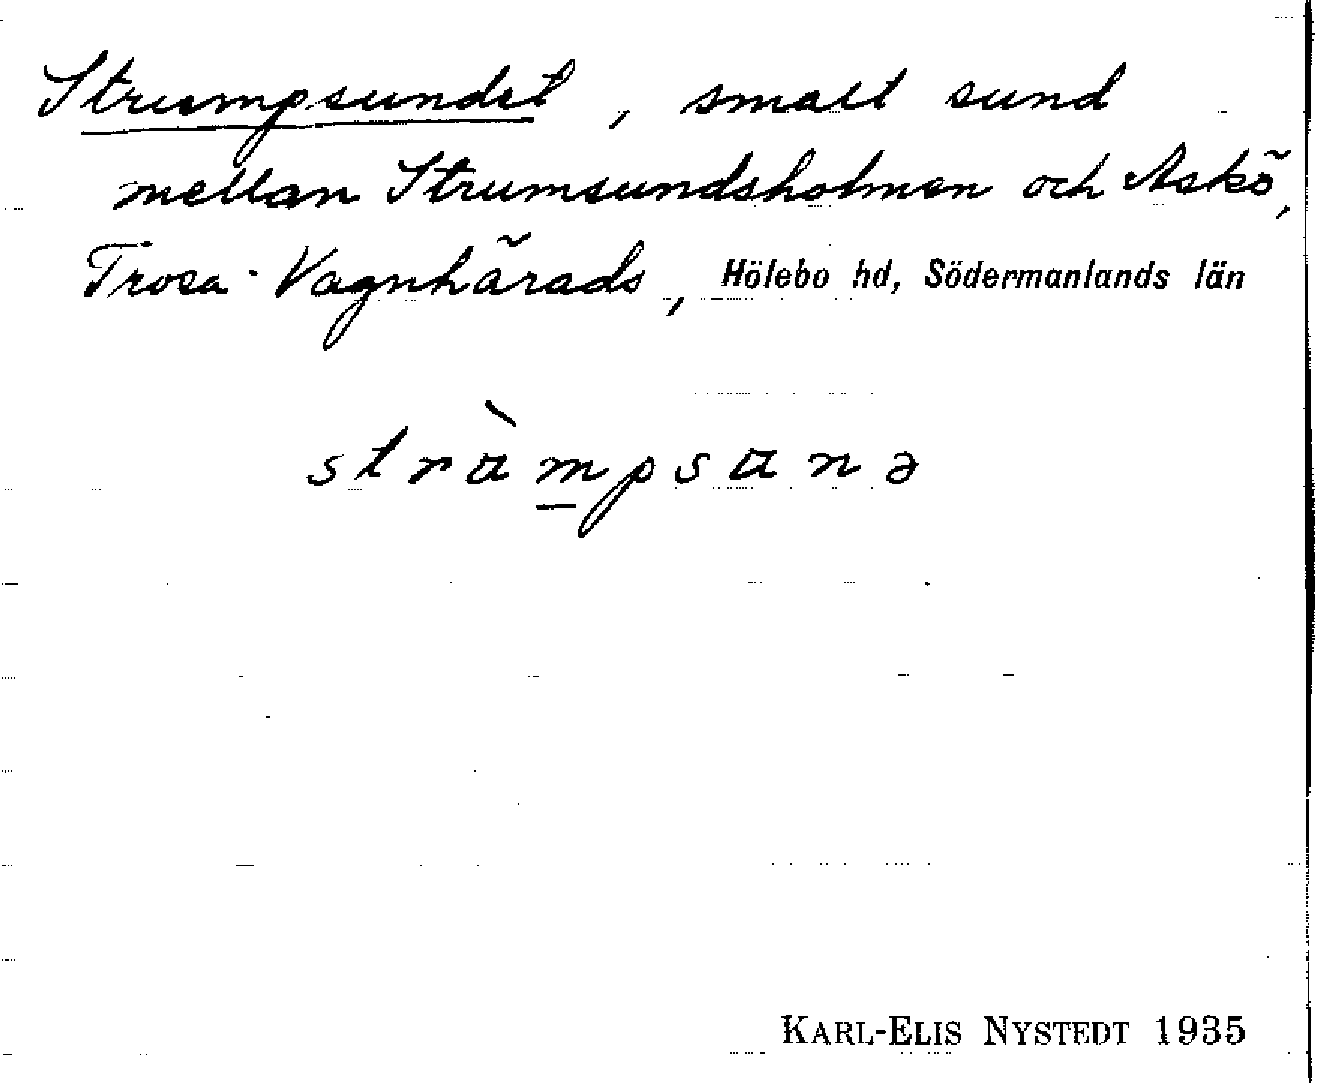 Strumpsundet, smalt sund
mellan Strumsundsholmen och Askö,
Trosa-Vagnhärads, Hölebo hd, Södermanlands län
stràmpsana
KARL-ELIS NYSTEDT 1935